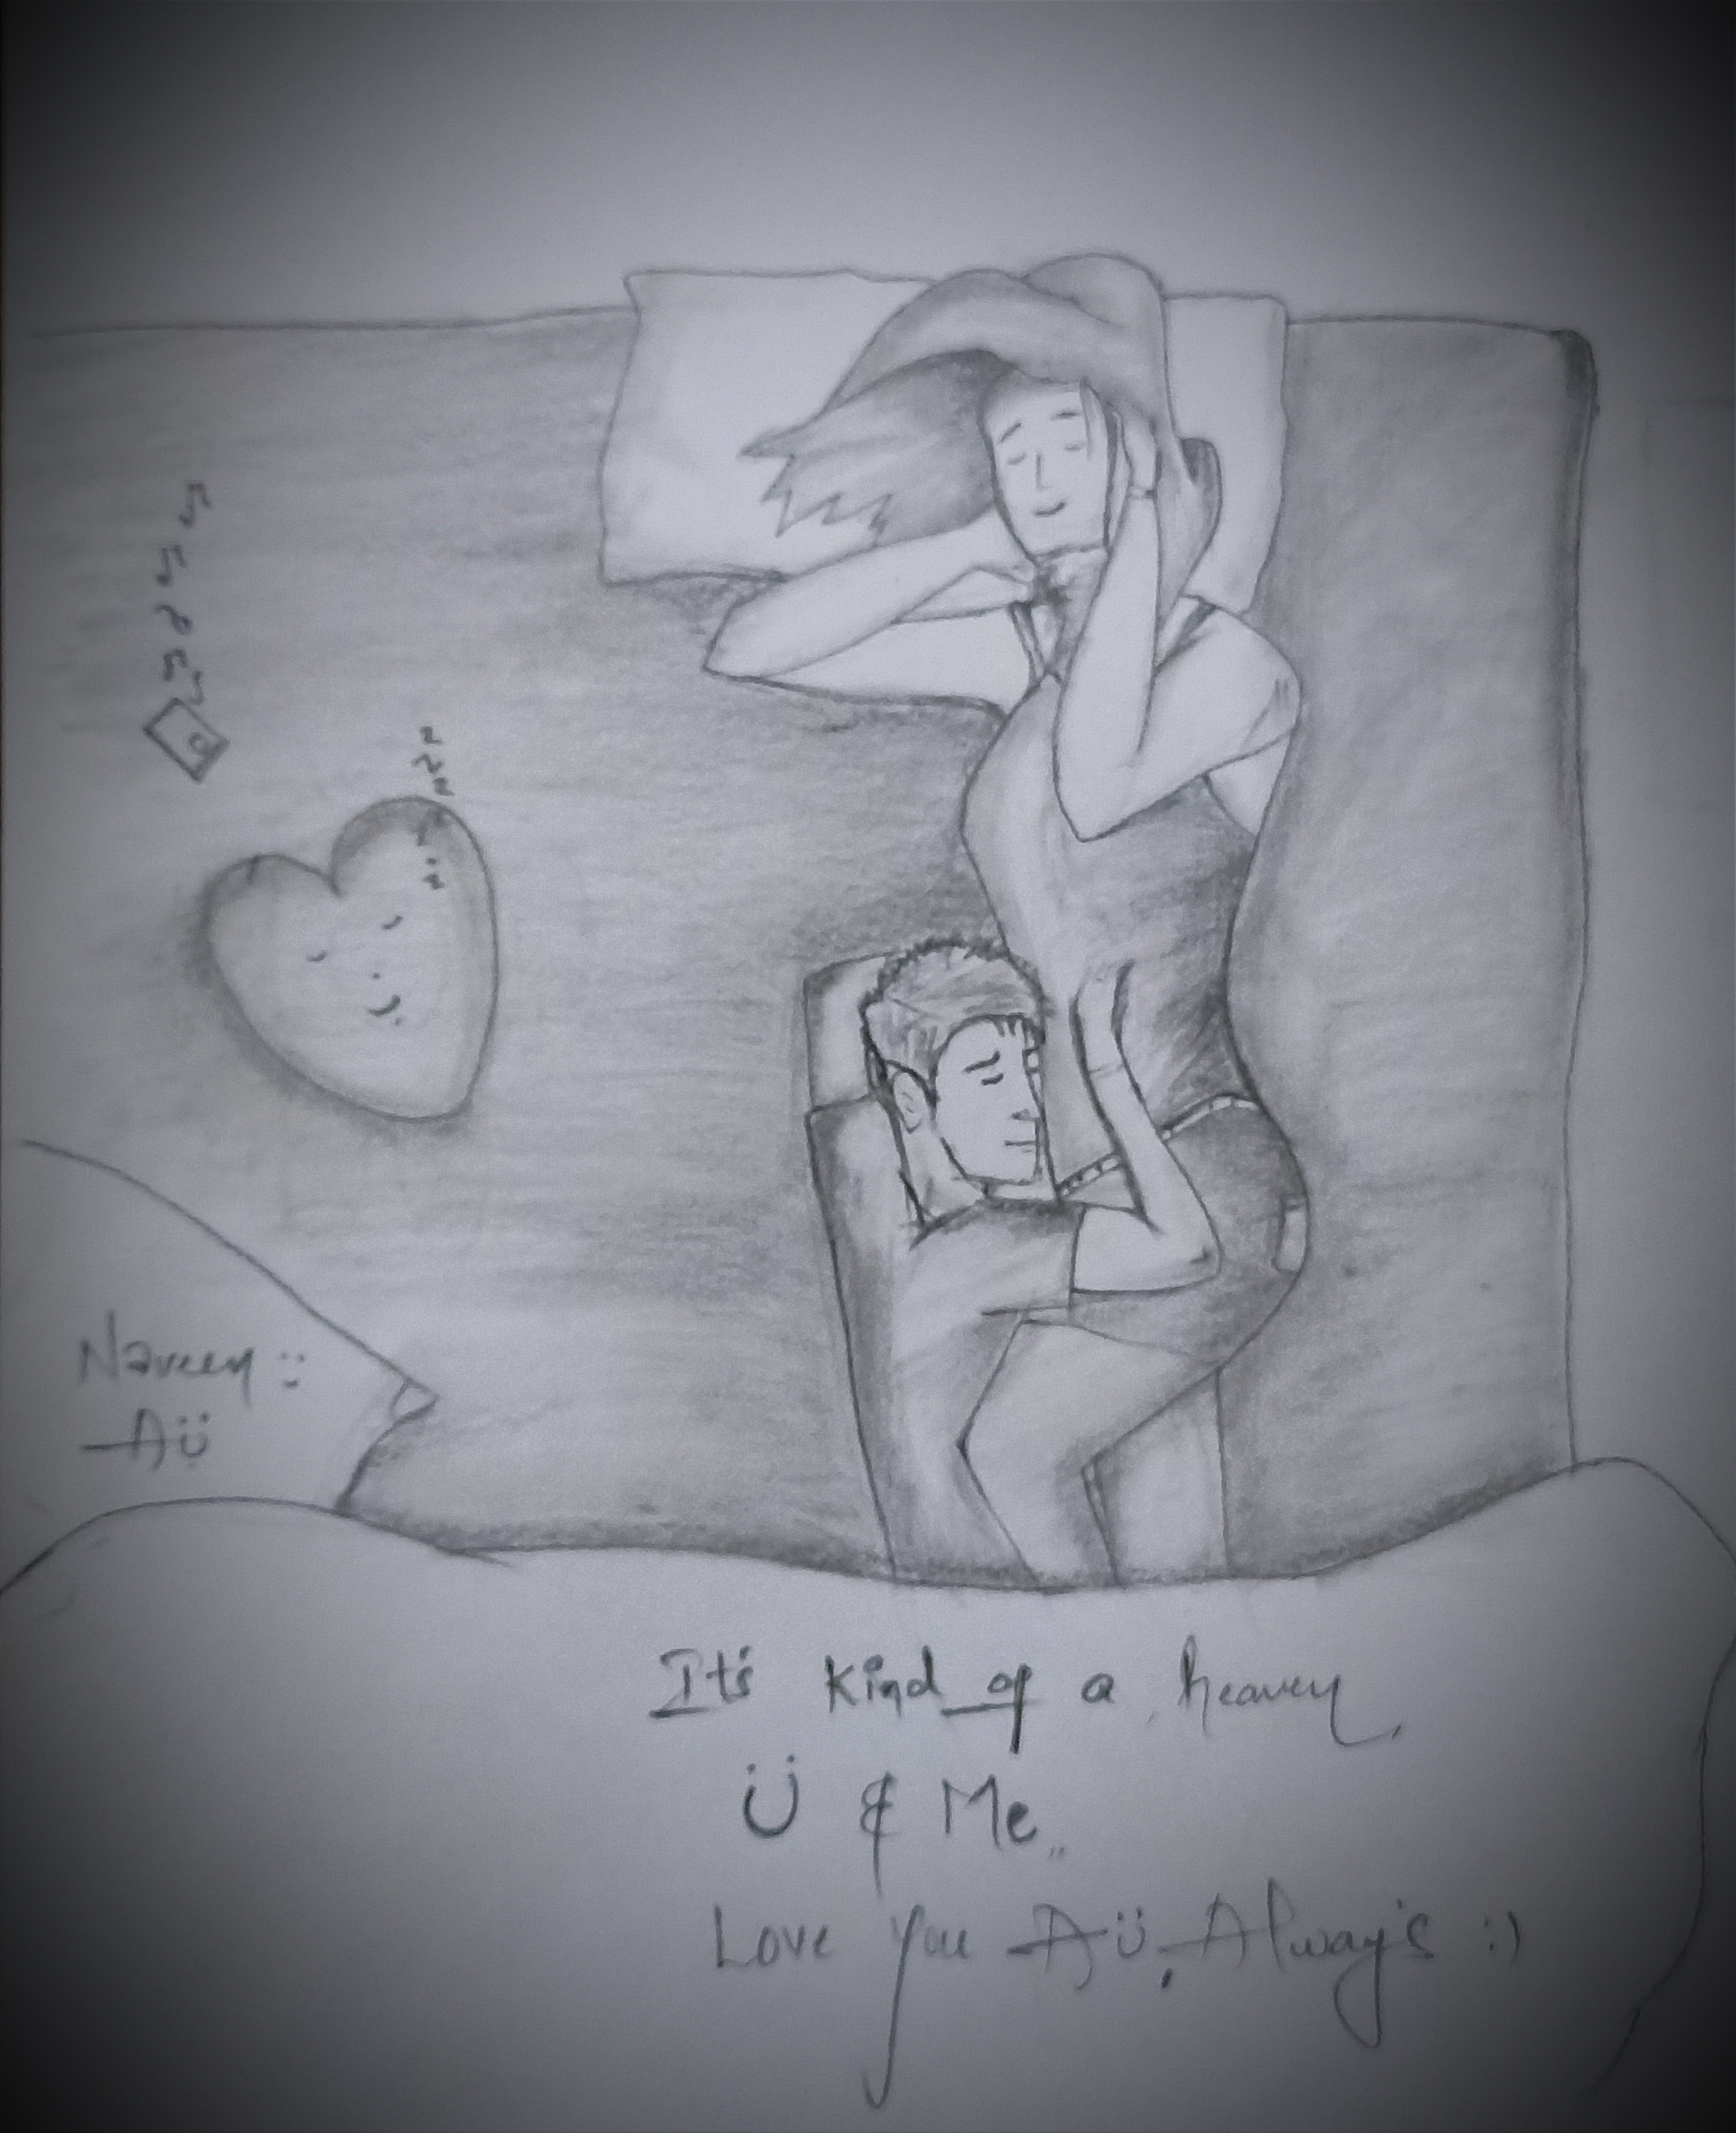 Naveen :)
AÜ
It's kind of a heaven,
Ü & Me..
Love you AÜ, Always :)